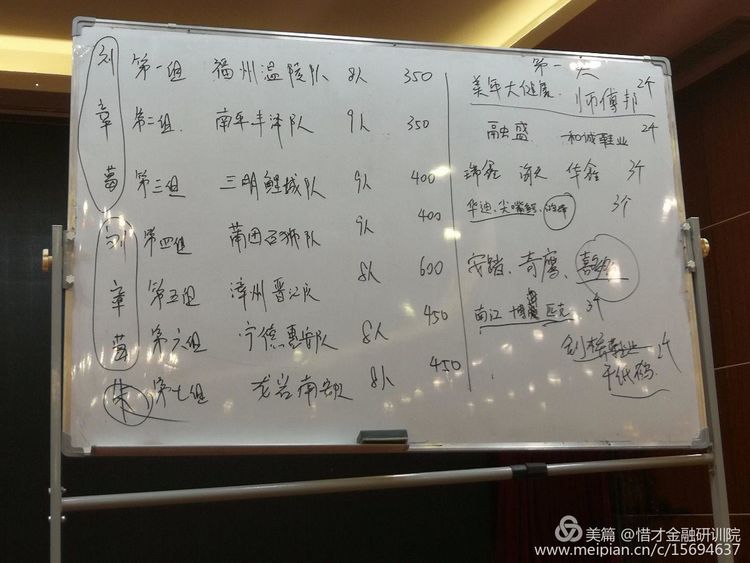 第一组 福州温陵队 8人 350
第二组 南平丰泽队 9人 350
第三组 三明鲤城队 9人 400
第四组 莆田石狮队 9人 400
第五组 漳州晋江队 8人 600
第六组 宁德惠安队 8人 450
第七组 龙岩南安队 8人 450
刘
章
第一天
美年大健康 师傅邦 2个
融盛 和诚鞋业 2个
海天 华鑫 3个
华迪、尖嘴鳄、 3个
安踏、奇鹰、
南江 匹克 3个
鞋业 2个
千纸鹤
美篇 @惜才金融研训院
www.meipian.cn/c/15694637